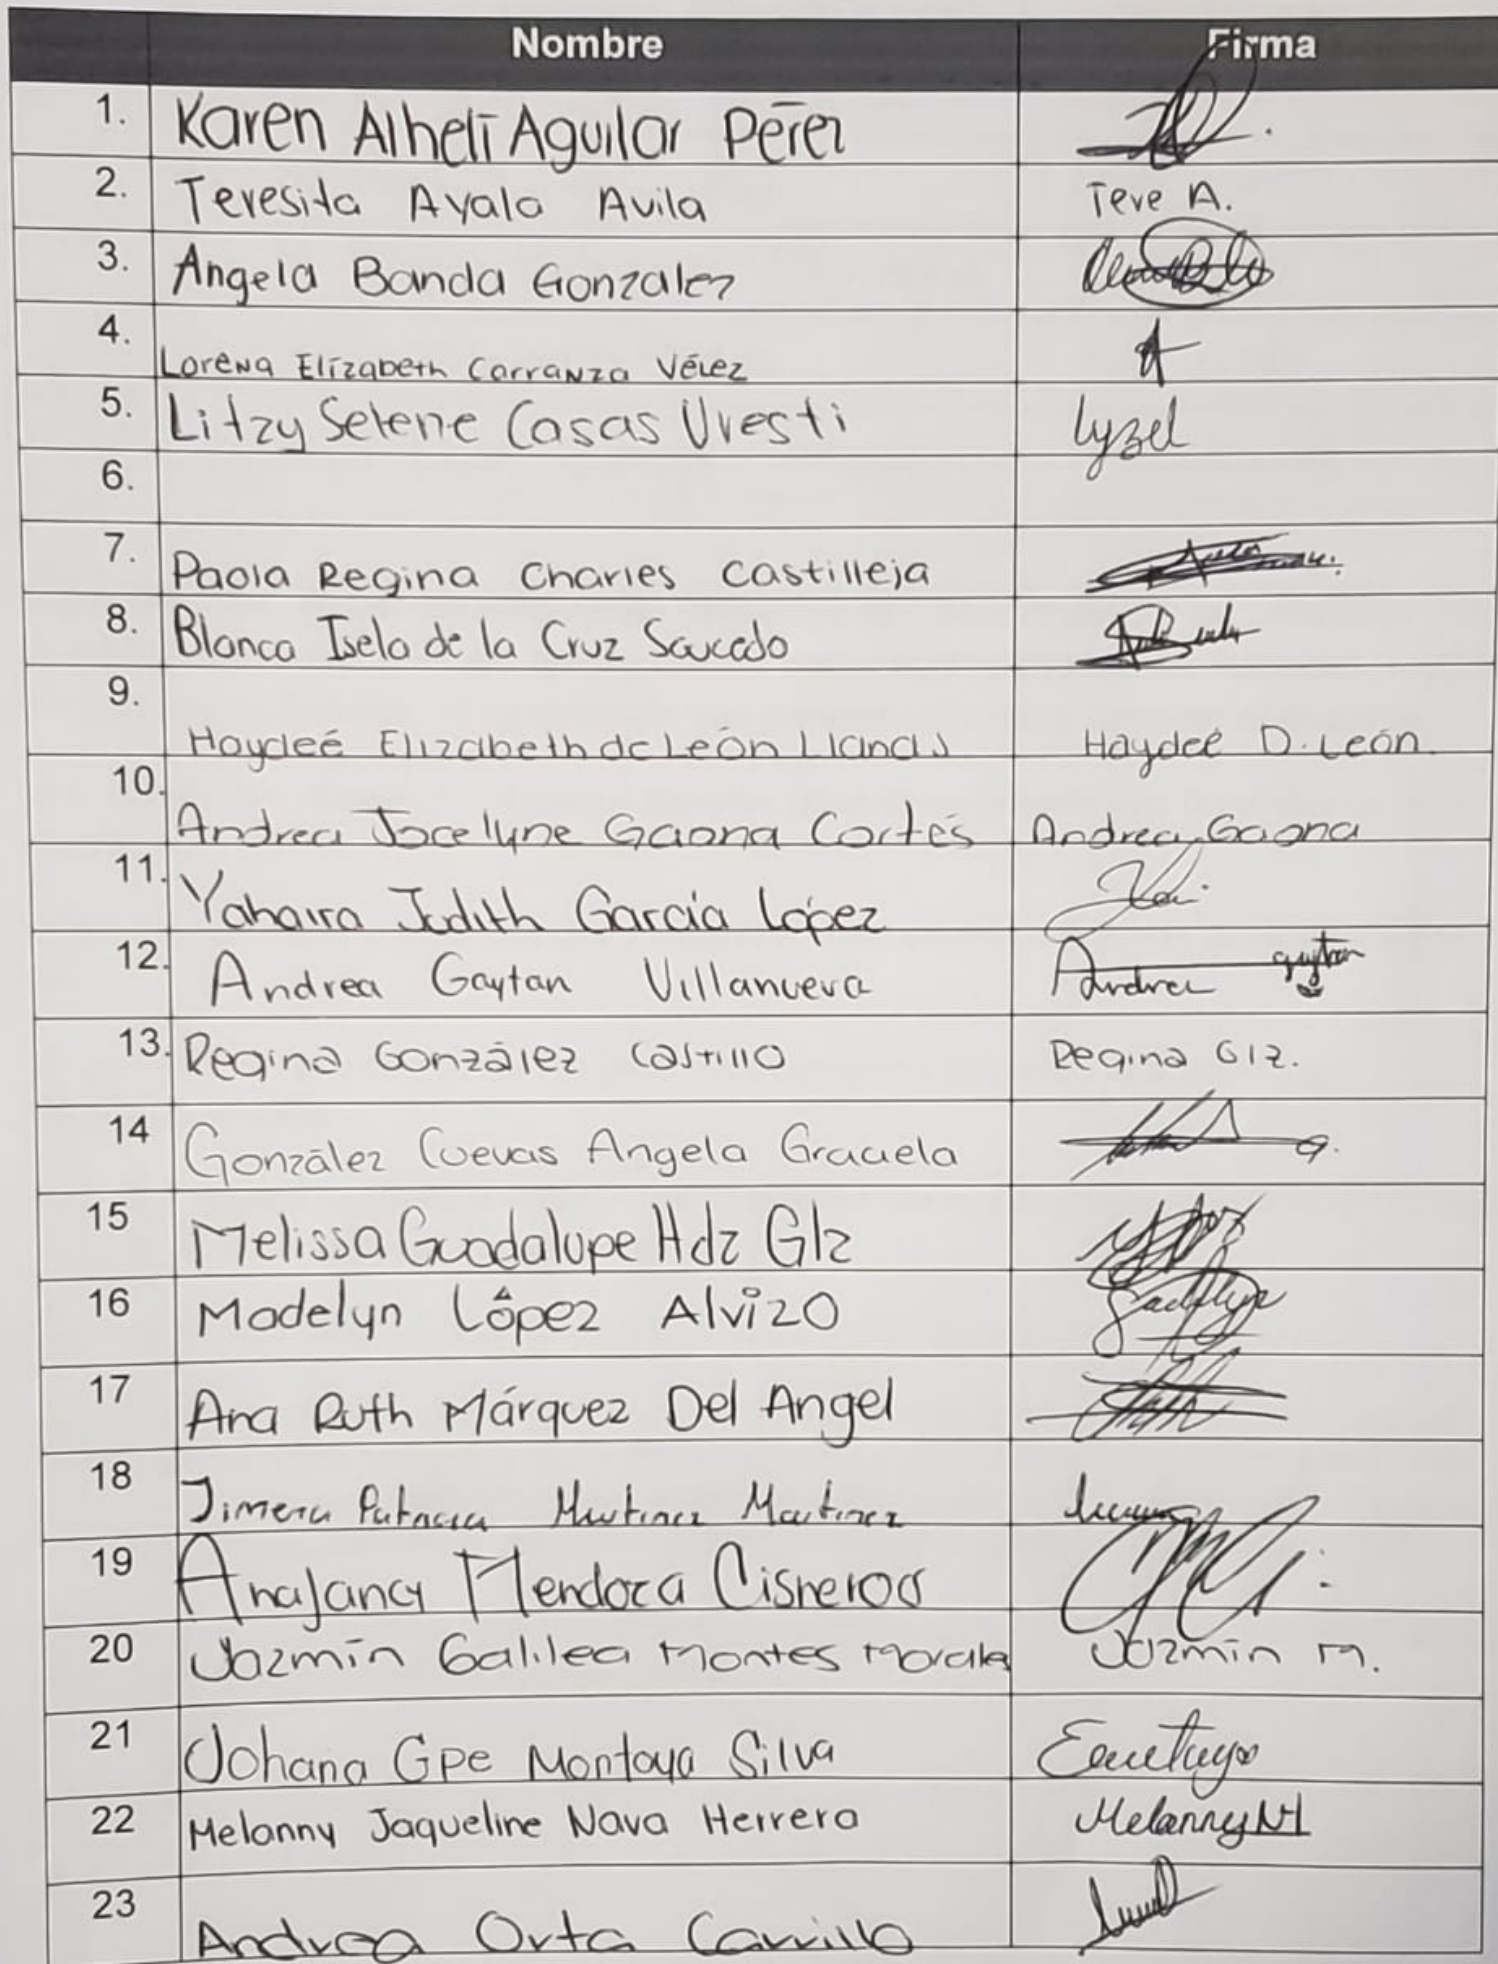 Nombre Firma
1. Karen Alhelí Aguilar Pérez
2. Teresita Ayala Avila Tere A.
3. Angela Banda Gonzalez
4. Lorena Elizabeth Carranza Vélez
5. Litzy Selene Casas Uresti Lyzel
6.
7. Paola Regina Charles Castilleja
8. Blanca Isela de la Cruz Saucedo
9. Haydeé Elizabeth de León Llanas Haydeé D. León
10. Andrea Jocelyne Gaona Cortés Andrea Gaona
11. Yahaira Judith García López
12. Andrea Gaytan Villanueva Andrea gaytan
13. Regina González Castillo Regina Glz.
14 González Cuevas Angela Graciela
15 Melissa Guadalupe Hdz Glz
16 Madelyn López Alvizo
17 Ana Ruth Márquez Del Angel
18 Jimena Patricia Martinez Martinez
19 Anajancy Mendoza Cisneros
20 Jazmín Galilea Montes Morales Jazmín M.
21 Johana Gpe Montoya Silva
22 Melanny Jaqueline Nava Herrera Melanny NH
23 Andrea Orta Carrillo